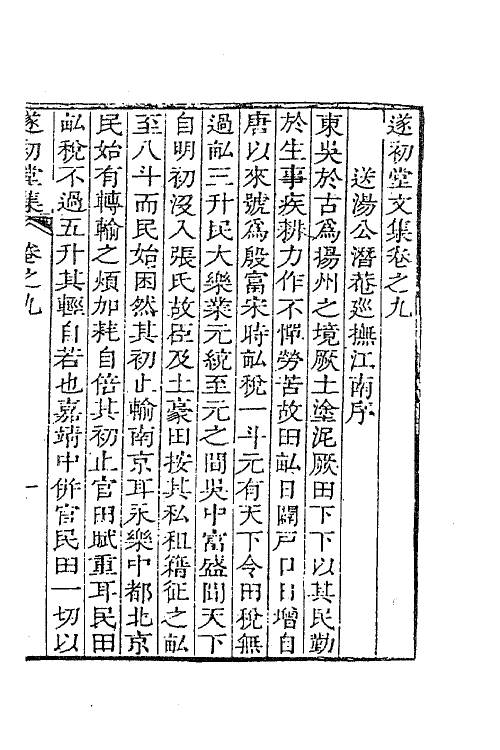 遂初堂文集卷之九
送湯公潛菴廵撫江南序
東吳於古爲揚州之境厥土塗泥厥田下下以其民勤
於生事疾耕力作不憚勞苦故田畝日闢戸口日增自
唐以來號爲殷富宋時畝稅一斗元有天下令田稅無
過畝三升民大樂業元統至元之間吳中富盛聞天下
自明初沒入張氏故臣及土豪田按其私租籍征之畝
至八斗而民始困然其初止輸南京耳永樂中都北京
民始有轉輸之煩加耗自倍其初止官田賦重耳民田
畝稅不過五升其輕自若也嘉靖中併官民田一切以
遂初堂集 卷之九 一